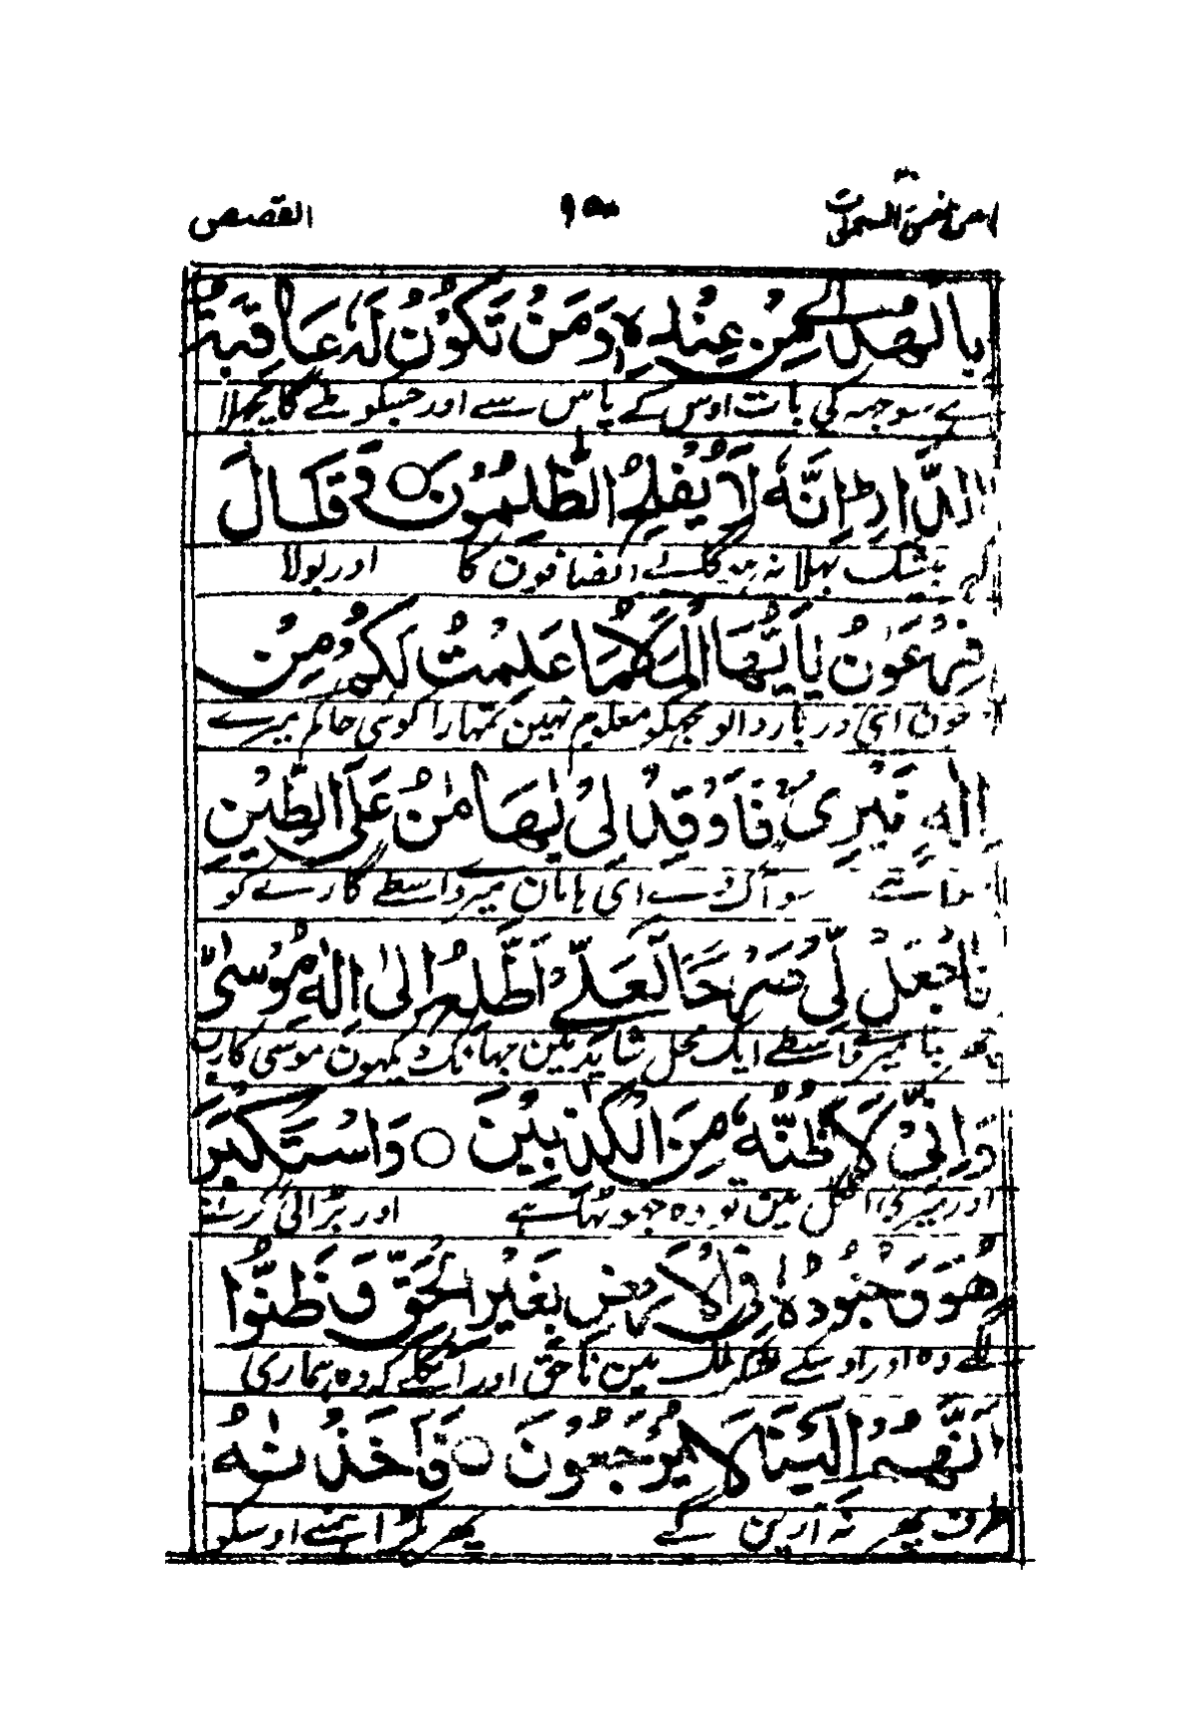 امن خلق السموت ۹۵۰ القصص
بِالْهُدٰى مِنْ عِنْدِهٖ وَمَنْ تَكُوْنُ لَهٗ عَاقِبَةُ
کی بات اوس کے پاس سے اور جسکو ملے گا پچھلا
الدَّارِ ؕ اِنَّهٗ لَا يُفْلِحُ الظّٰلِمُوْنَ ○ وَقَالَ
بیشک بھلا نہ ہوگا بے انصافون کا اور بولا
فِرْعَوْنُ يٰاَيُّهَا الْمَلَاُ مَا عَلِمْتُ لَكُمْ مِّنْ
عون ای دربار والو مجھکو معلوم نہین تمہارا کوئی حاکم میرے
اِلٰهٍ غَيْرِىْ ۚ فَاَوْقِدْ لِىْ يٰهَامٰنُ عَلَى الطِّيْنِ
سوائے سو آگ دے ای ہامان میرے واسطے گارے کو
فَاجْعَلْ لِّىْ صَرْحًا لَّعَلِّىْ اَطَّلِعُ اِلٰٓى اِلٰهِ مُوْسٰى
پھر بنا میرے واسطے ایک محل شاید مین جہانک دیکھون موسی کا رب
وَاِنِّىْ لَاَظُنُّهٗ مِنَ الْكٰذِبِيْنَ ○ وَاسْتَكْبَرَ
اور میری اٹکل مین تو وہ جھوٹھا ہے اور بڑائی کرنے
هُوَ وَجُنُوْدُهٗ فِى الْاَرْضِ بِغَيْرِ الْحَقِّ وَظَنُّوْا
لگے وہ اور اوسکے لشکر ملک مین ناحق اور اٹکلے کہ وہ ہماری
اَنَّهُمْ اِلَيْنَا لَا يُرْجَعُوْنَ ○ فَاَخَذْنٰهُ
طرف پھر نہ آوین گے پھر پکڑا ہمنے اوسکو